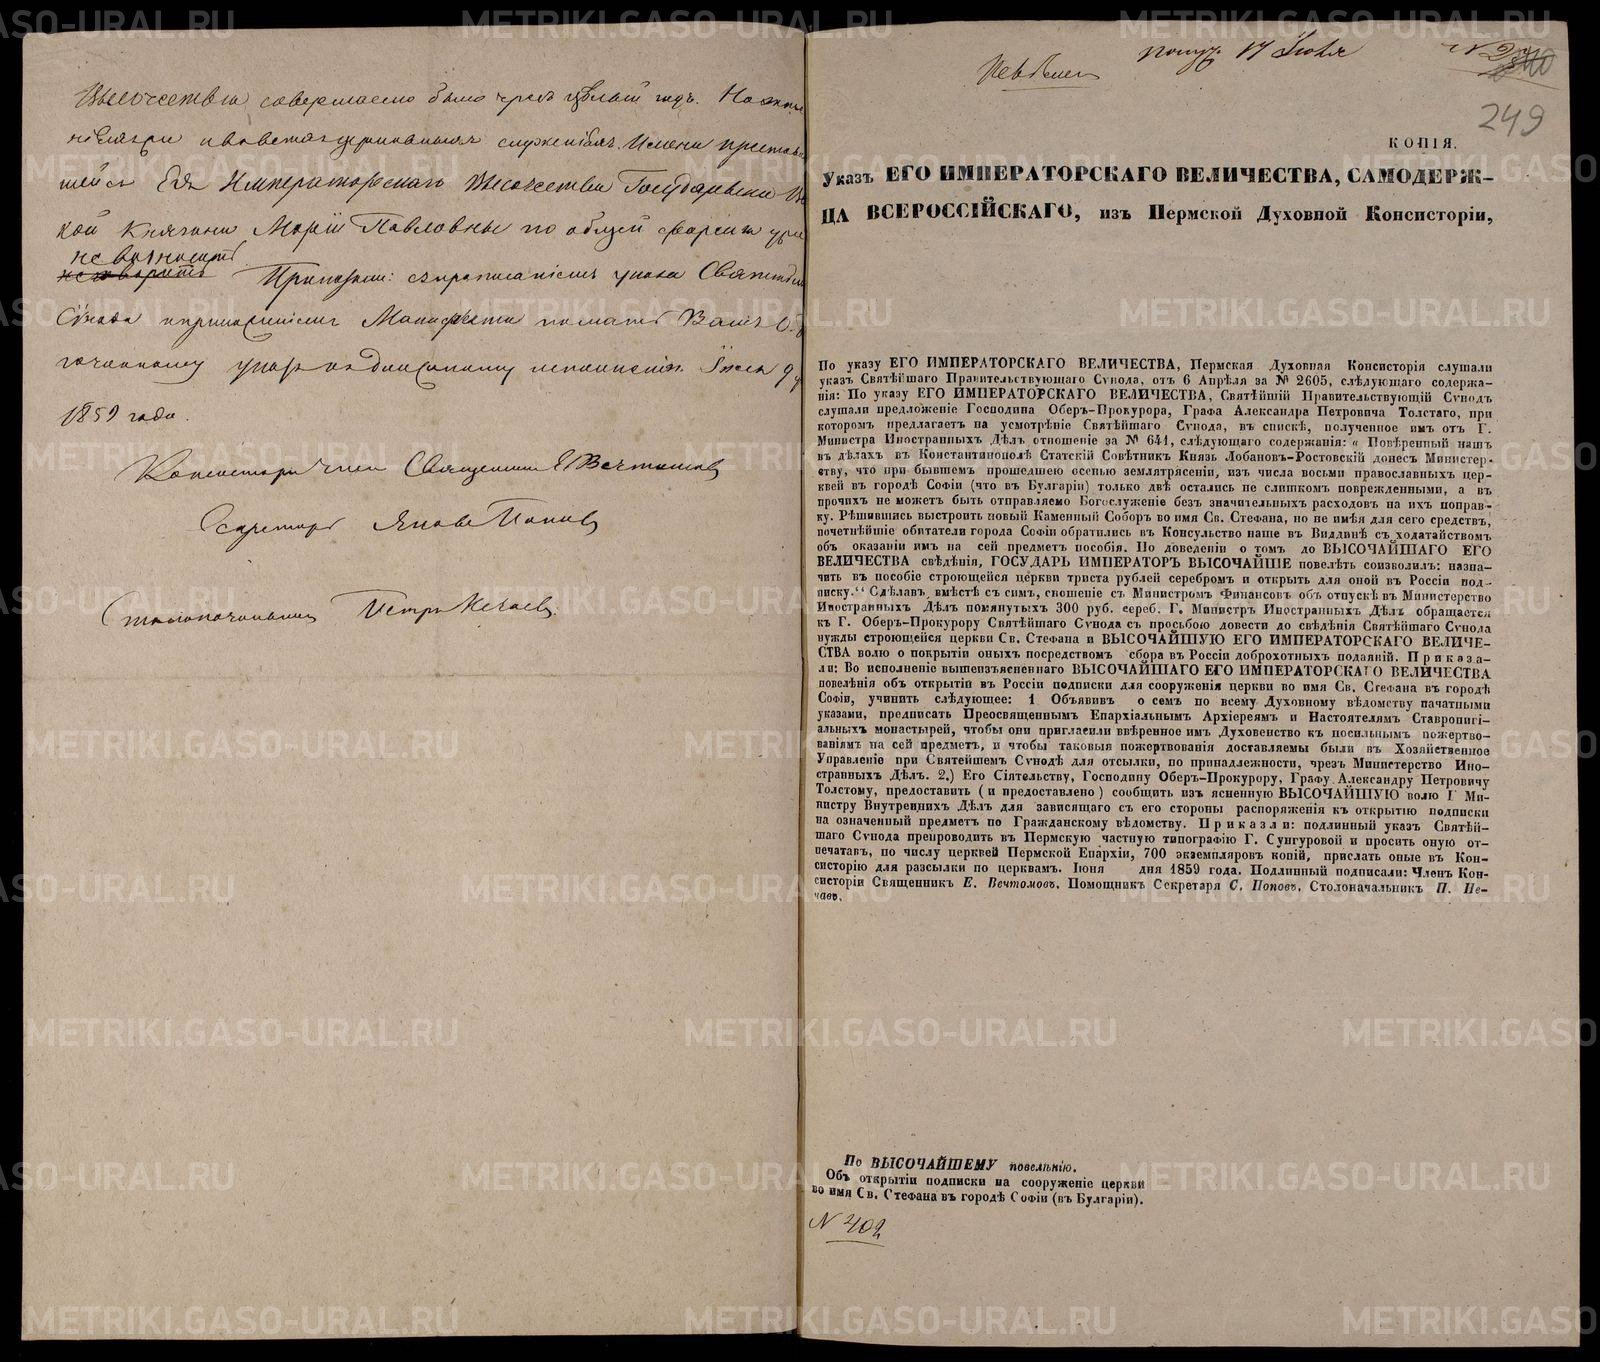 Высочества совершаемо было чрезъ цѣлый годъ. На
шейся Ея Императорскаго Высочества Государыни Ве
кой Княгини Маріи Павловны по общей формѣ
не возносить
Приказали: съ прописаніемъ указа Святѣйш
Сѵнода и приложеніемъ Манифеста послать Вамъ
точинному указъ къ должному исполненію. Іюля 9 д
1859 года.
Консисторіи Членъ Священникъ Е Вечтомовъ
Секретарь Яковъ Поповъ
Столоначальникъ Петръ Нечаевъ
получ. 17 Іюля
249
КОПІЯ.
Указъ ЕГО ИМПЕРАТОРСКАГО ВЕЛИЧЕСТВА, САМОДЕРЖ-
ЦА ВСЕРОССІЙСКАГО, изъ Пермской Духовной Консисторіи,
По указу ЕГО ИМПЕРАТОРСКАГО ВЕЛИЧЕСТВА, Пермская Духовная Консисторія слушали
указъ Святѣйшаго Правительствующаго Сѵнода, отъ 6 Апрѣля за № 2605, слѣдующаго содержа-
нія: По указу ЕГО ИМПЕРАТОРСКАГО ВЕЛИЧЕСТВА, Святѣйшій Правительствующій Сѵнодъ
слушали предложеніе Господина Оберъ-Прокурора, Графа Александра Петровича Толстаго, при
которомъ предлагаетъ на усмотрѣніе Святѣйшаго Сѵнода, въ спискѣ, полученное имъ отъ Г.
Министра Иностранныхъ Дѣлъ отношеніе за № 641, слѣдующаго содержанія: « Повѣренный нашъ
въ дѣлахъ въ Константинополѣ Статскій Совѣтникъ Князь Лобановъ-Ростовскій донесъ Министер-
ству, что при бывшемъ прошедшею осенью землятрясеніи, изъ числа восьми православныхъ цер-
квей въ городѣ Софіи (что въ Булгаріи) только двѣ остались не слишкомъ поврежденными, а въ
прочихъ не можетъ быть отправляемо Богослуженіе безъ значительныхъ расходовъ на ихъ поправ-
ку. Рѣшившись выстроить новый Каменный Соборъ во имя Св. Стефана, но не имѣя для сего средствъ,
почетнѣйшіе обитатели города Софіи обратились въ Консульство наше въ Виддинѣ съ ходатайствомъ
объ оказаніи имъ на сей предметъ пособія. По доведеніи о томъ до ВЫСОЧАЙШАГО ЕГО
ВЕЛИЧЕСТВА свѣдѣнія, ГОСУДАРЬ ИМПЕРАТОРЪ ВЫСОЧАЙШЕ повелѣть соизволилъ: назна-
чить въ пособіе строющейся церкви триста рублей серебромъ и открыть для оной въ Россіи под-
писку.“ Сдѣлавъ, вмѣстѣ съ симъ, сношеніе съ Министромъ Финансовъ объ отпускѣ въ Министерство
Иностранныхъ Дѣлъ помянутыхъ 300 руб. сереб. Г. Министръ Иностранныхъ Дѣлъ обращается
къ Г. Оберъ-Прокурору Святѣйшаго Сѵнода съ просьбою довести до свѣдѣнія Святѣйшаго Сѵнода
нужды строющейся церкви Св. Стефана и ВЫСОЧАЙШУЮ ЕГО ИМПЕРАТОРСКАГО ВЕЛИЧЕ-
СТВА волю о покрытіи оныхъ посредствомъ сбора въ Россіи доброхотныхъ подаяній. Приказа-
ли: Во исполненіе вышеизъясненнаго ВЫСОЧАЙШАГО ЕГО ИМПЕРАТОРСКАГО ВЕЛИЧЕСТВА
повелѣнія объ открытіи въ Россіи подписки для сооруженія церкви во имя Св. Стефана въ городѣ
Софіи, учинить слѣдующее: 1 Объявивъ о семъ по всему Духовному вѣдомству пачатными
указами, предписать Преосвященнымъ Епархіальнымъ Архіереямъ и Настоятелямъ Ставропигі-
альныхъ монастырей, чтобы они пригласили ввѣренное имъ Духовенство къ посильнымъ пожертво-
ваніямъ на сей предметъ, и чтобы таковыя пожертвованія доставляемы были въ Хозяйственное
Управленіе при Святейшемъ Сѵнодѣ для отсылки, по принадлежности, чрезъ Министерство Ино-
странныхъ Дѣлъ. 2.) Его Сіятельству, Господину Оберъ-Прокурору, Графу Александру Петровичу
Толстому, предоставить ( и предоставлено ) сообщить изъ ясненную ВЫСОЧАЙШУЮ волю Г Ми-
нистру Внутреннихъ Дѣлъ для зависящаго съ его стороны распоряженія къ открытію подписки
на означенный предметъ по Гражданскому вѣдомству. Приказли: подлинный указъ Святѣй-
шаго Сѵнода препроводить въ Пермскую частную типографію Г. Сунгуровой и просить оную от-
печатавъ, по числу церквей Пермской Епархіи, 700 экземпляровъ копій, прислать оные въ Кон-
систорію для разсылки по церквамъ. Іюня дня 1859 года. Подлинный подписали: Членъ Кон-
систоріи Священникъ Е. Вечтомовъ, Помощникъ Секретаря С. Поповъ, Столоначальникъ П. Не-
чаевъ.
По ВЫСОЧАЙШЕМУ повелѣнію.
Объ открытіи подписки на сооруженіе церкви
во имя Св. Стефана въ городѣ Софіи (въ Булгаріи).
№ 402
METRIKI.GASO-URAL.RU